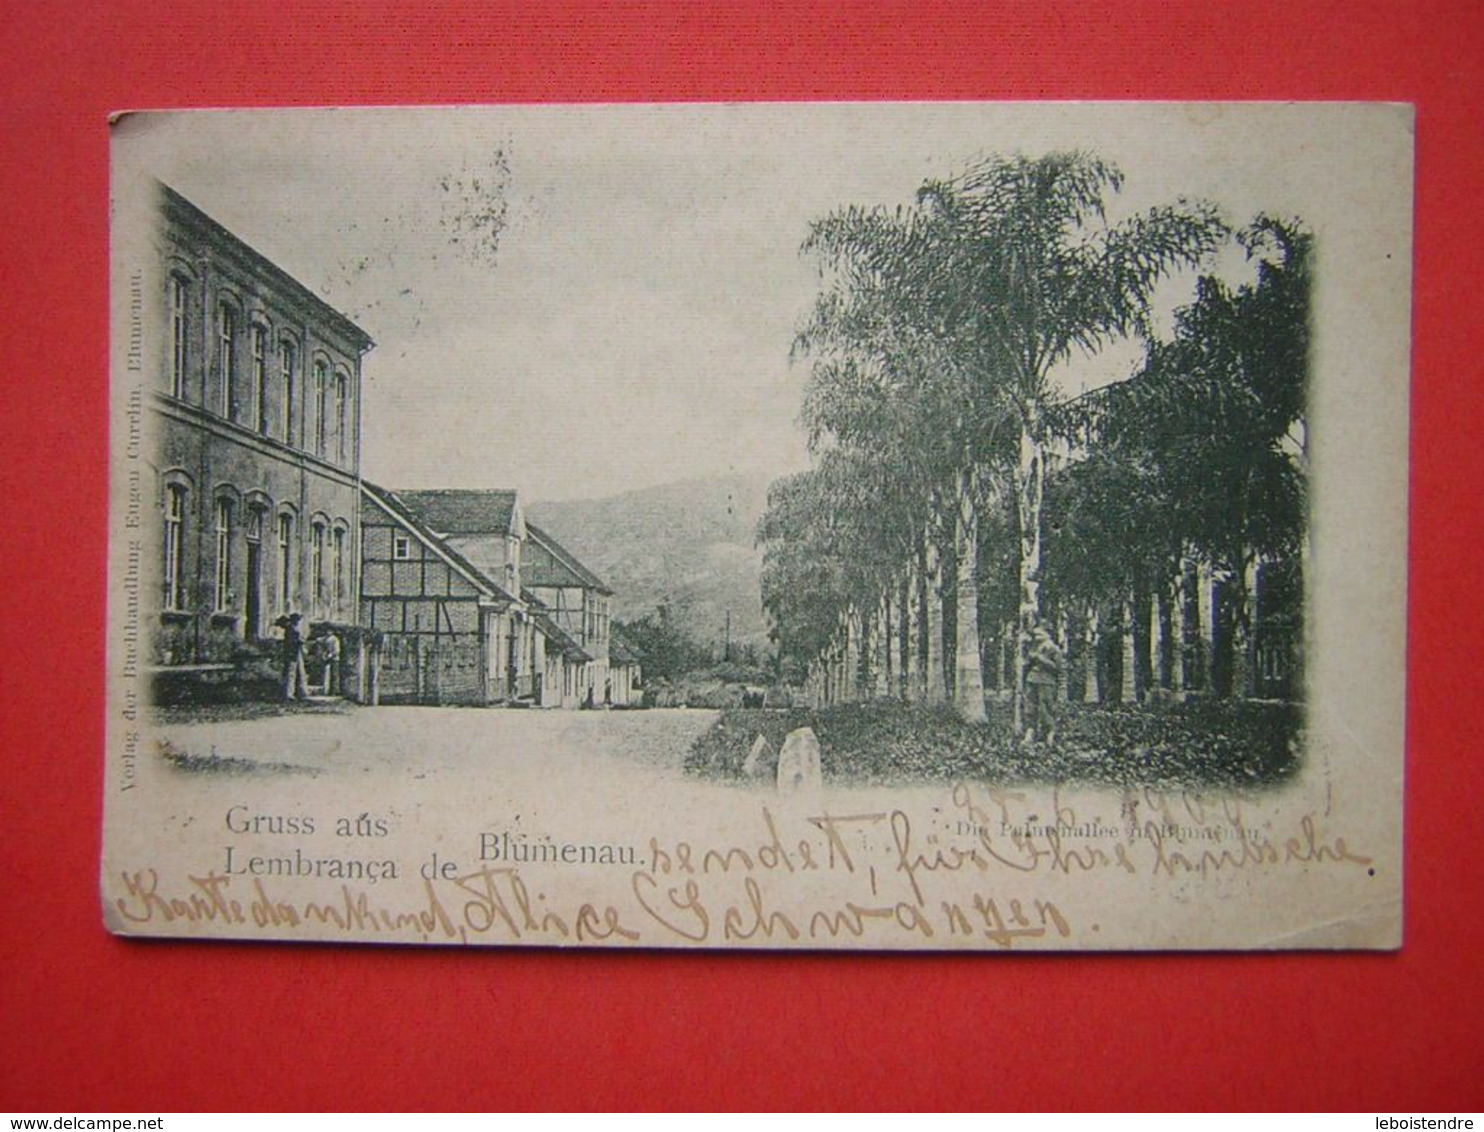 Verlag der Buchhandlung Eugen Currlin, Blumenau.
1900
Die Palmenallee in Blumenau.
Gruss aus
Lembrança de
Blumenau.
sendet, für Ihre hübsche
Karte dankend, Alice Schwanzen.
www.delcampe.net
leboistendre